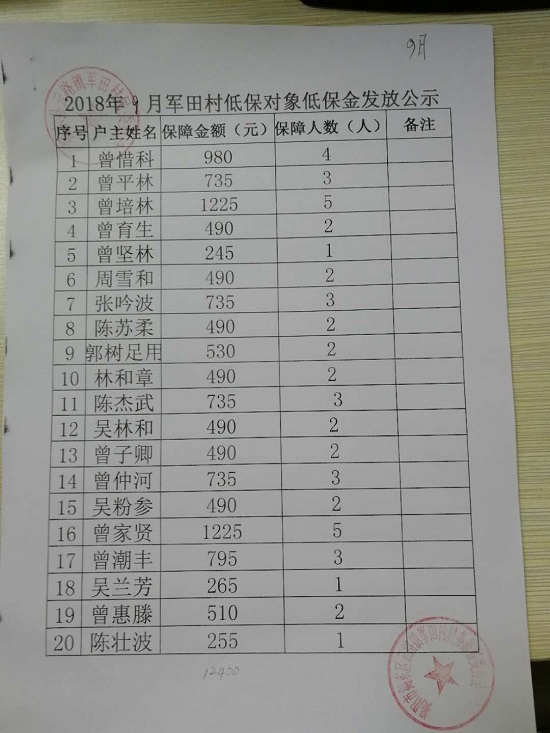 9月
2018年9月军田村低保对象低保金发放公示
序号 户主姓名 保障金额（元） 保障人数（人） 备注
1 曾惜科 980 4
2 曾平林 735 3
3 曾培林 1225 5
4 曾育生 490 2
5 曾坚林 245 1
6 周雪和 490 2
7 张吟波 735 3
8 陈苏柔 490 2
9 郭树足用 530 2
10 林和章 490 2
11 陈杰武 735 3
12 吴林和 490 2
13 曾子卿 490 2
14 曾仲河 735 3
15 吴粉参 490 2
16 曾家贤 1225 5
17 曾潮丰 795 3
18 吴兰芳 265 1
19 曾惠滕 510 2
20 陈壮波 255 1
12400